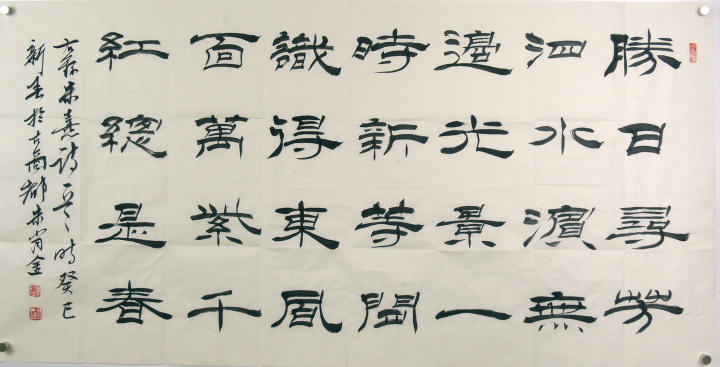 勝日尋芳
泗水濱無
邊光景一
時新等閒
識得東風
面萬紫千
紅總是春
朱熹詩時癸巳
新春於古商都朱肖金